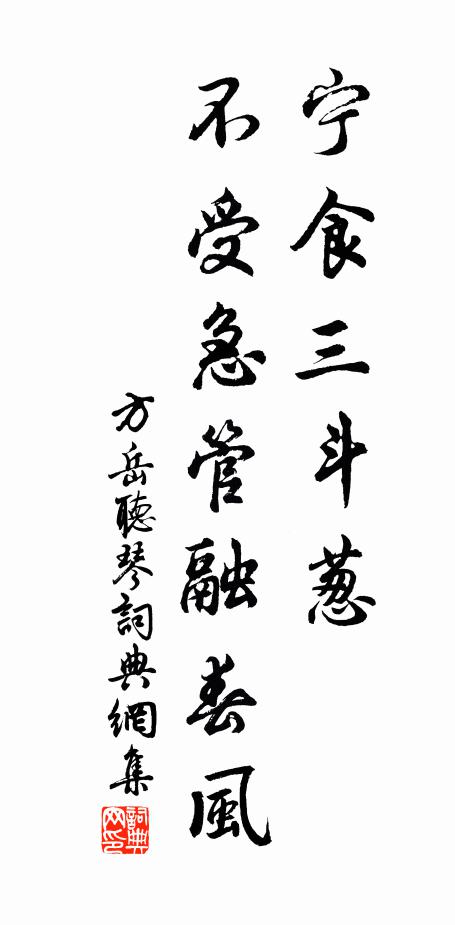 宁食三斗葱
不受急管融春風
方岳聽琴詞典網集
詞典网印